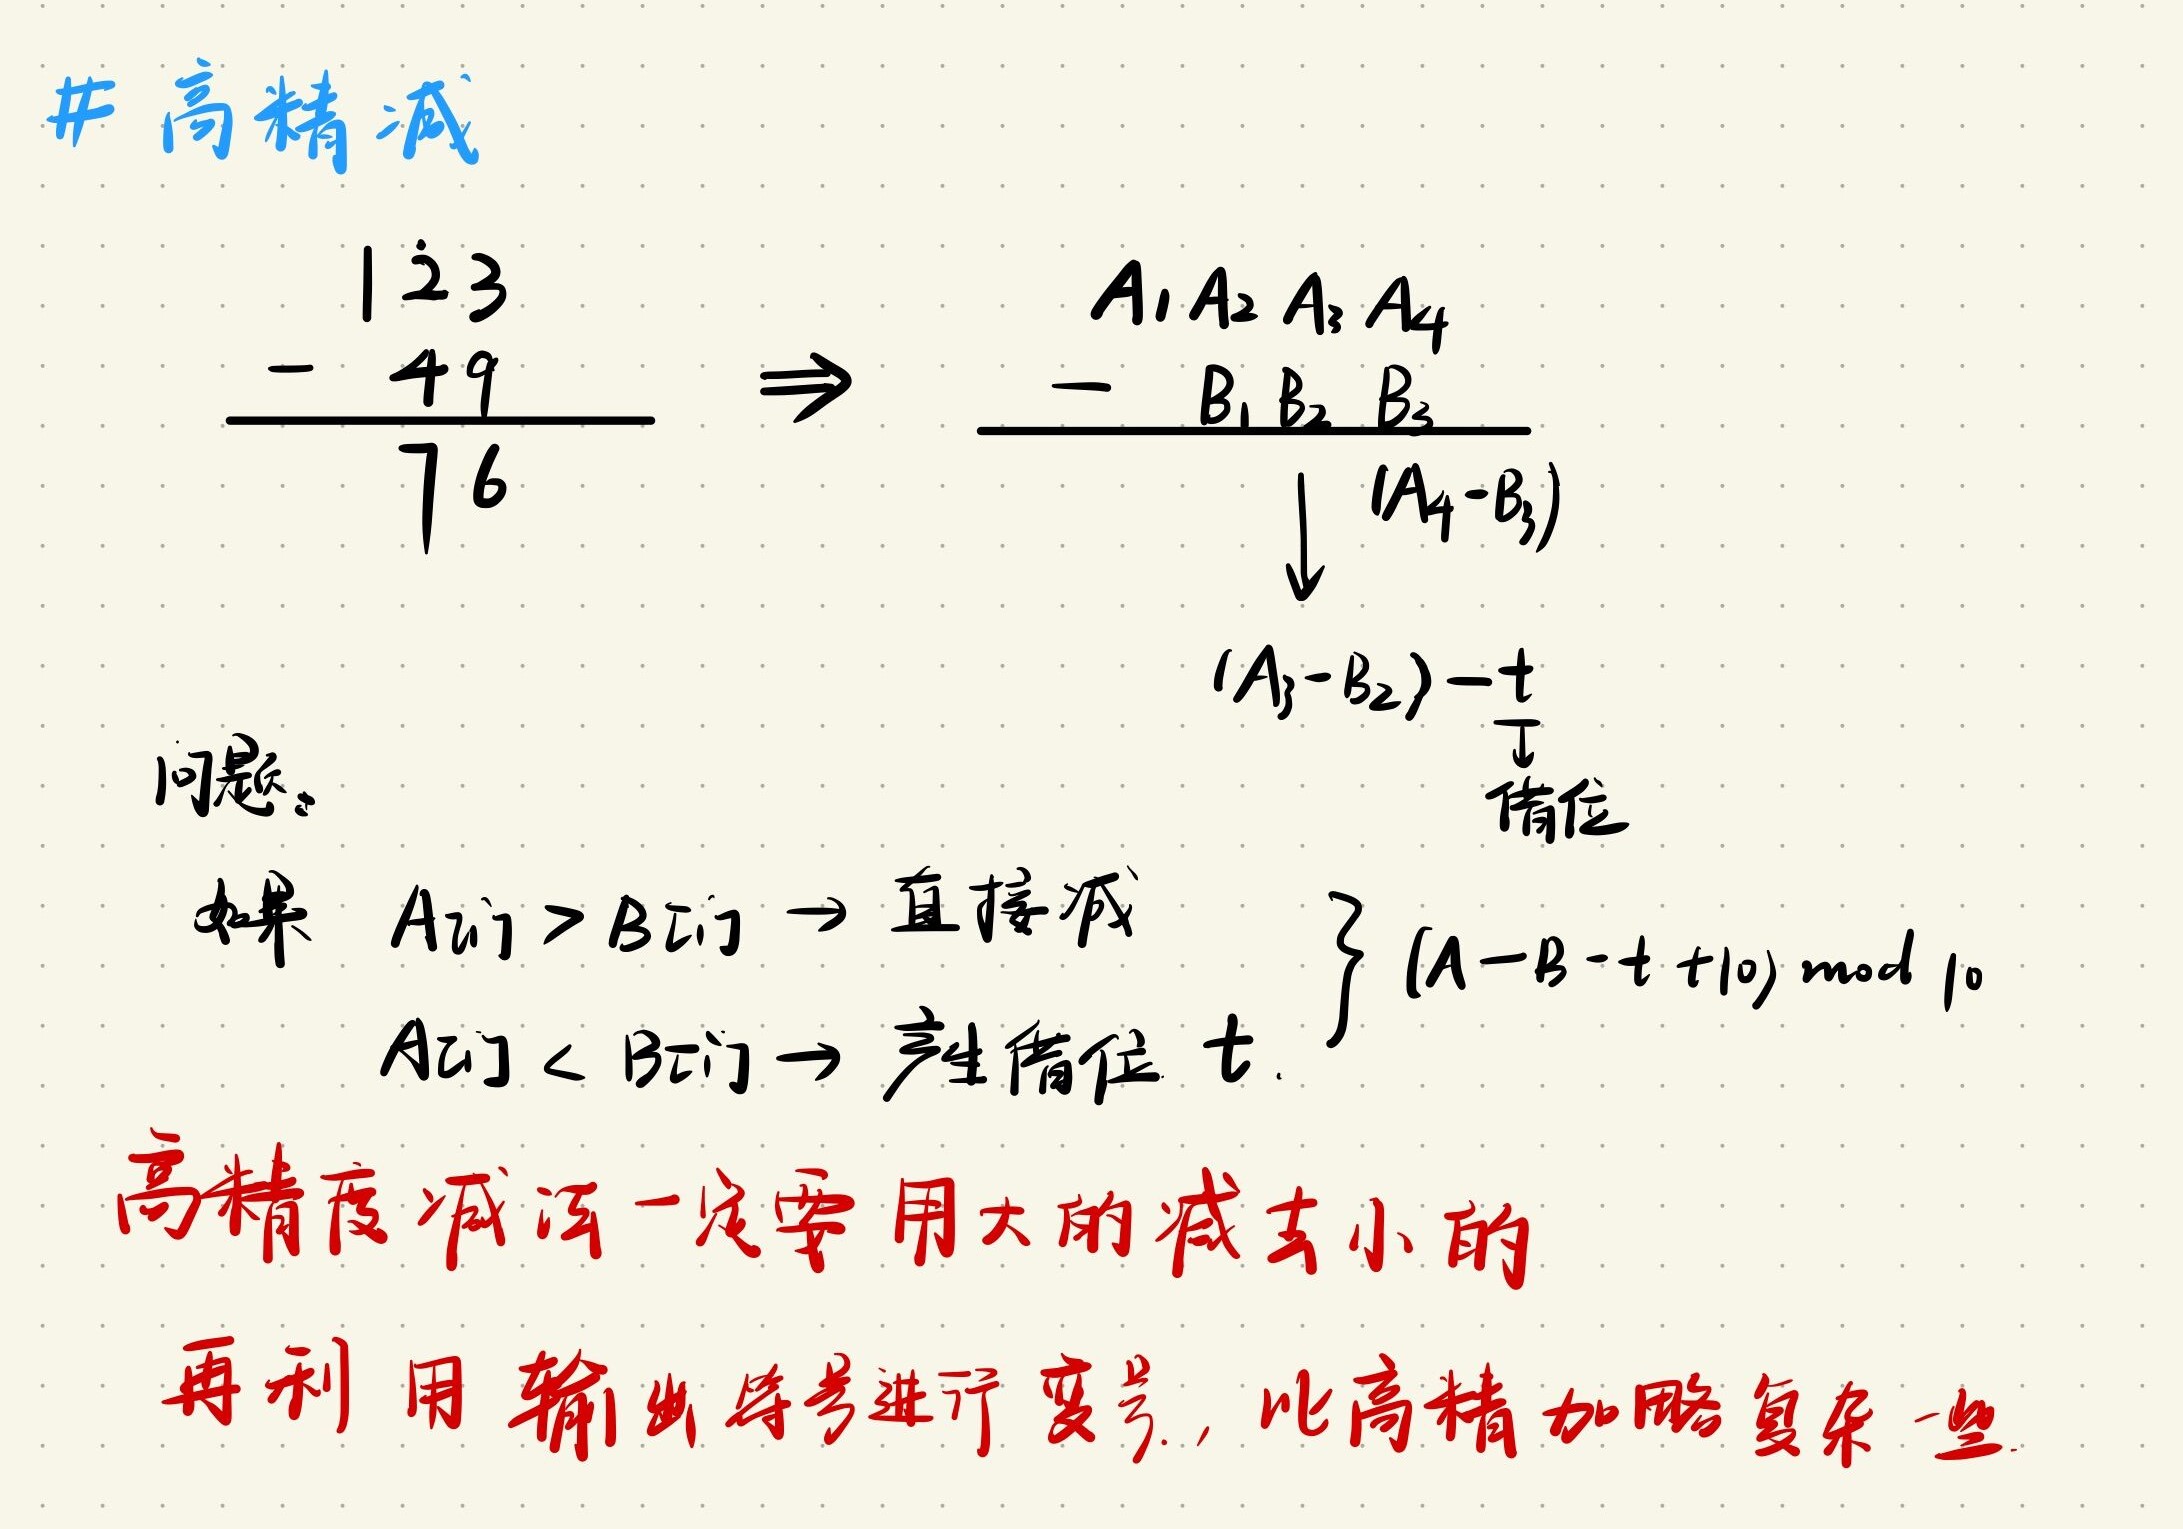 # 高精减
123
- 49
76
⇒
A₁ A₂ A₃ A₄
- B₁ B₂ B₃
(A₄-B₃)
↓
(A₃-B₂)-t
↓
借位
问题:
如果 A[i] > B[i] → 直接减
A[i] < B[i] → 产生借位 t.
} (A-B-t+10) mod 10
高精度减法一定要用大的减去小的
再利用输出符号进行变号, 比高精加略复杂一些.